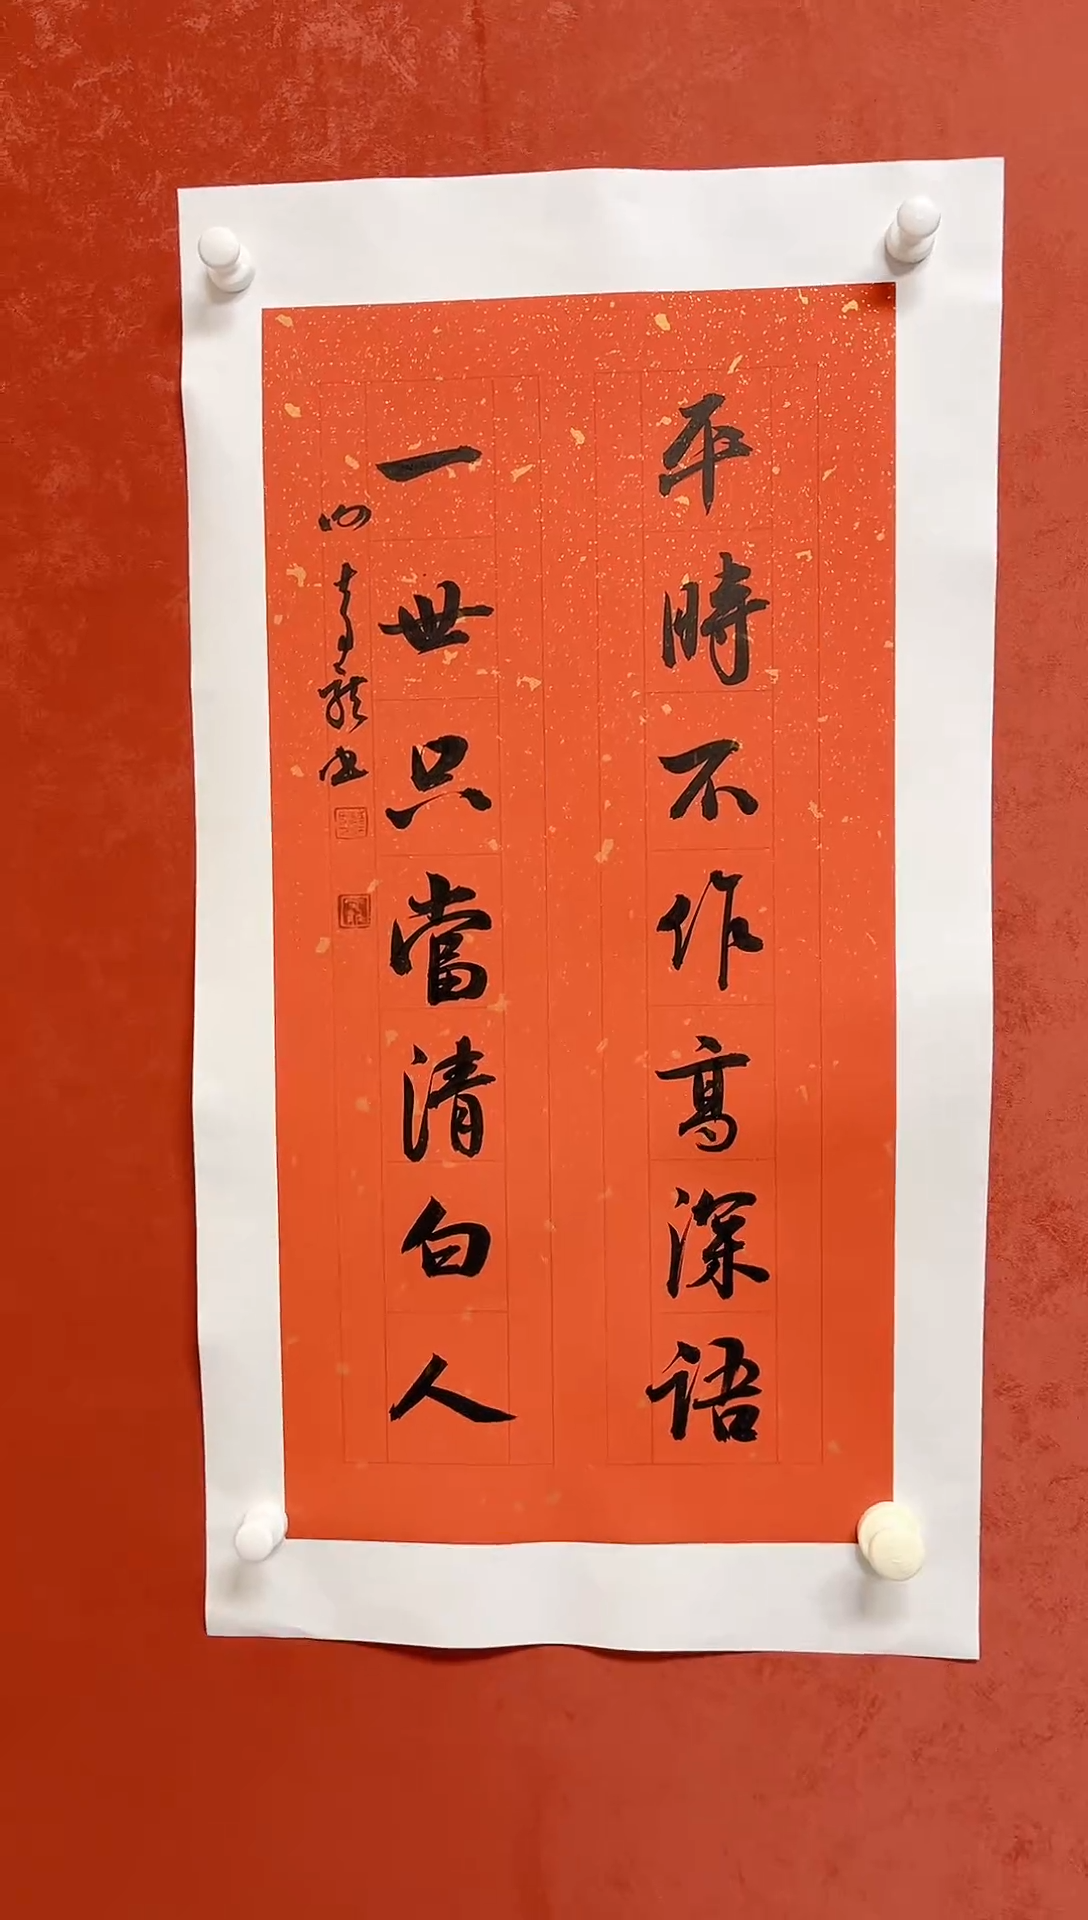 平時不作高深语
一世只當清白人